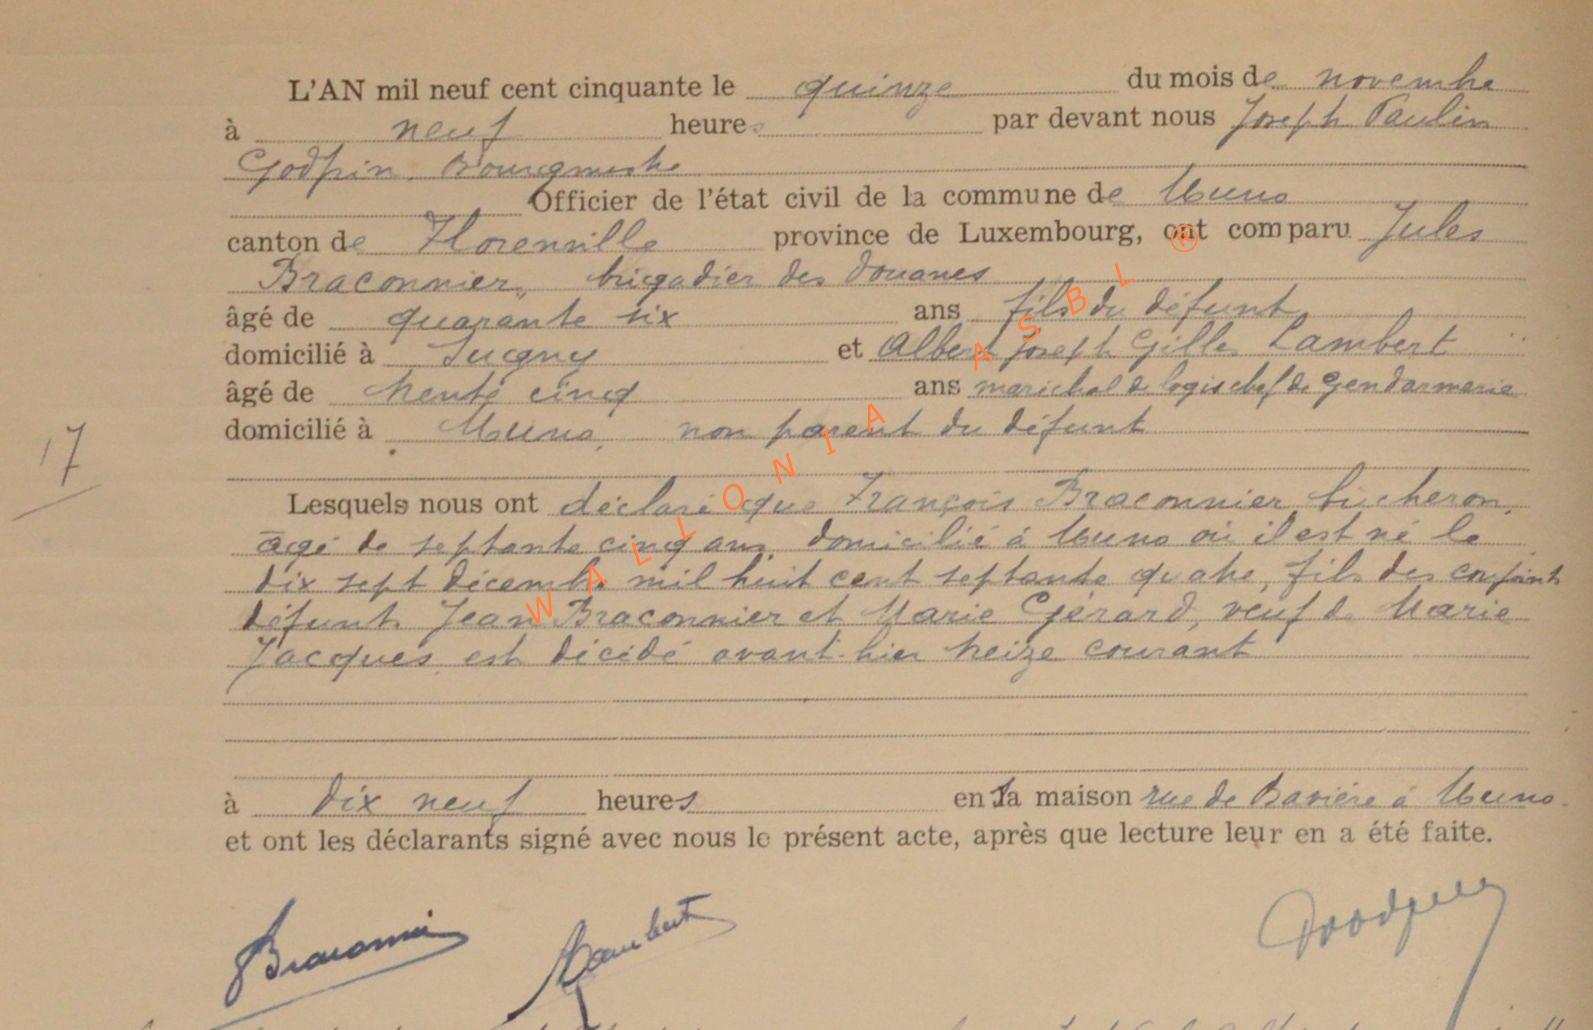 L'AN mil neuf cent cinquante le quinze du mois de novembre
à neuf heures par devant nous Joseph Paulin
Godfrin, Bourgmestre
Officier de l'état civil de la commune de Muno
canton de Florenville province de Luxembourg, ont comparu Jules
Braconnier, brigadier des douanes
âgé de quarante six ans fils du défunt
domicilié à Sugny et Albert Joseph Gilles Lambert
âgé de trente cinq ans maréchal de logis chef de gendarmerie
domicilié à Muno, non parent du défunt
17
Lesquels nous ont déclaré que François Braconnier, bûcheron,
âgé de septante cinq ans, domicilié à Muno où il est né le
dix sept décembre mil huit cent septante quatre, fils des conjoints
défunts Jean Braconnier et Marie Gérard, veuf de Marie
Jacques, est décédé avant-hier treize courant
à dix neuf heures en sa maison rue de Bavière à Muno.
et ont les déclarants signé avec nous le présent acte, après que lecture leur en a été faite.
Braconnier Lambert Godfrin
WALLONIA ASBL ®